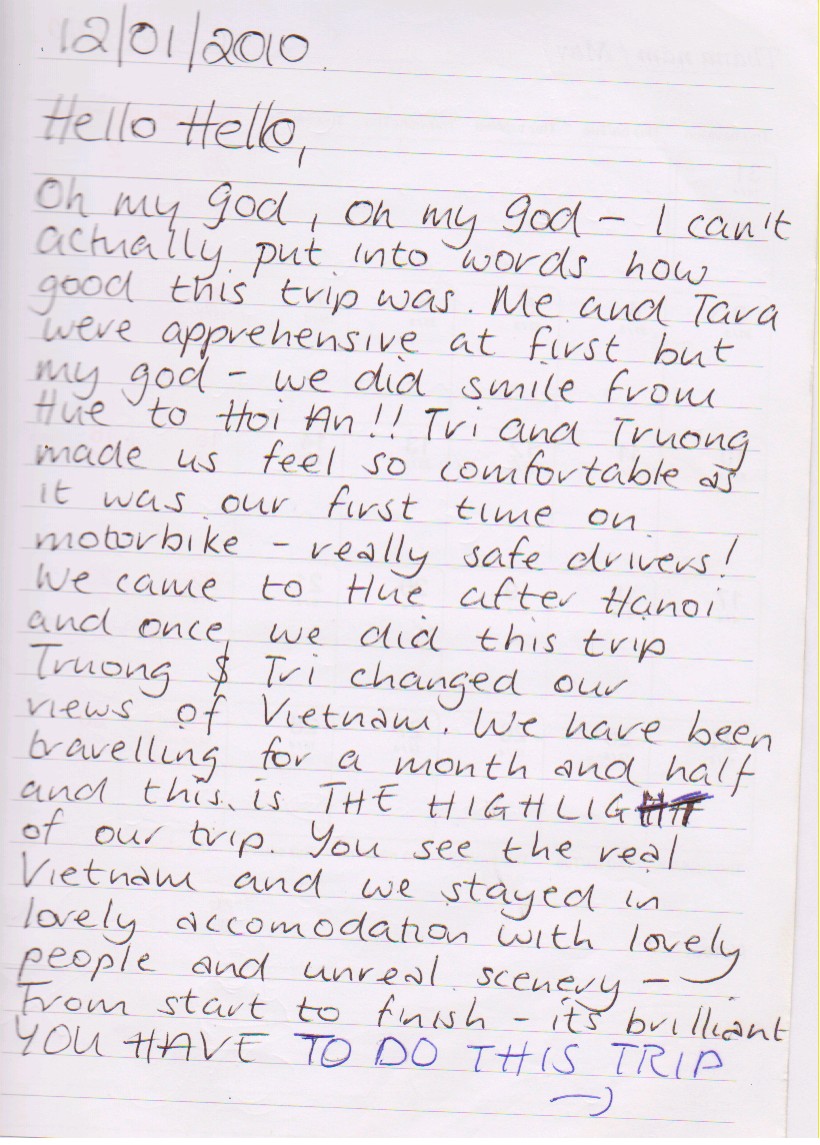 12/01/2010.
Hello Hello,
Oh my god, oh my god - I can't
actually put into words how
good this trip was. Me and Tara
were apprehensive at first but
my god - we did smile from
Hue to Hoi An!! Tri and Truong
made us feel so comfortable as
it was our first time on
motorbike - really safe drivers!
We came to Hue after Hanoi
and once we did this trip
Truong $ Tri changed our
views of Vietnam. We have been
travelling for a month and half
and this is THE HIGHLIGHT
of our trip. You see the real
Vietnam and we stayed in
lovely accomodation with lovely
people and unreal scenery -
From start to finish - it's brilliant
YOU HAVE TO DO THIS TRIP